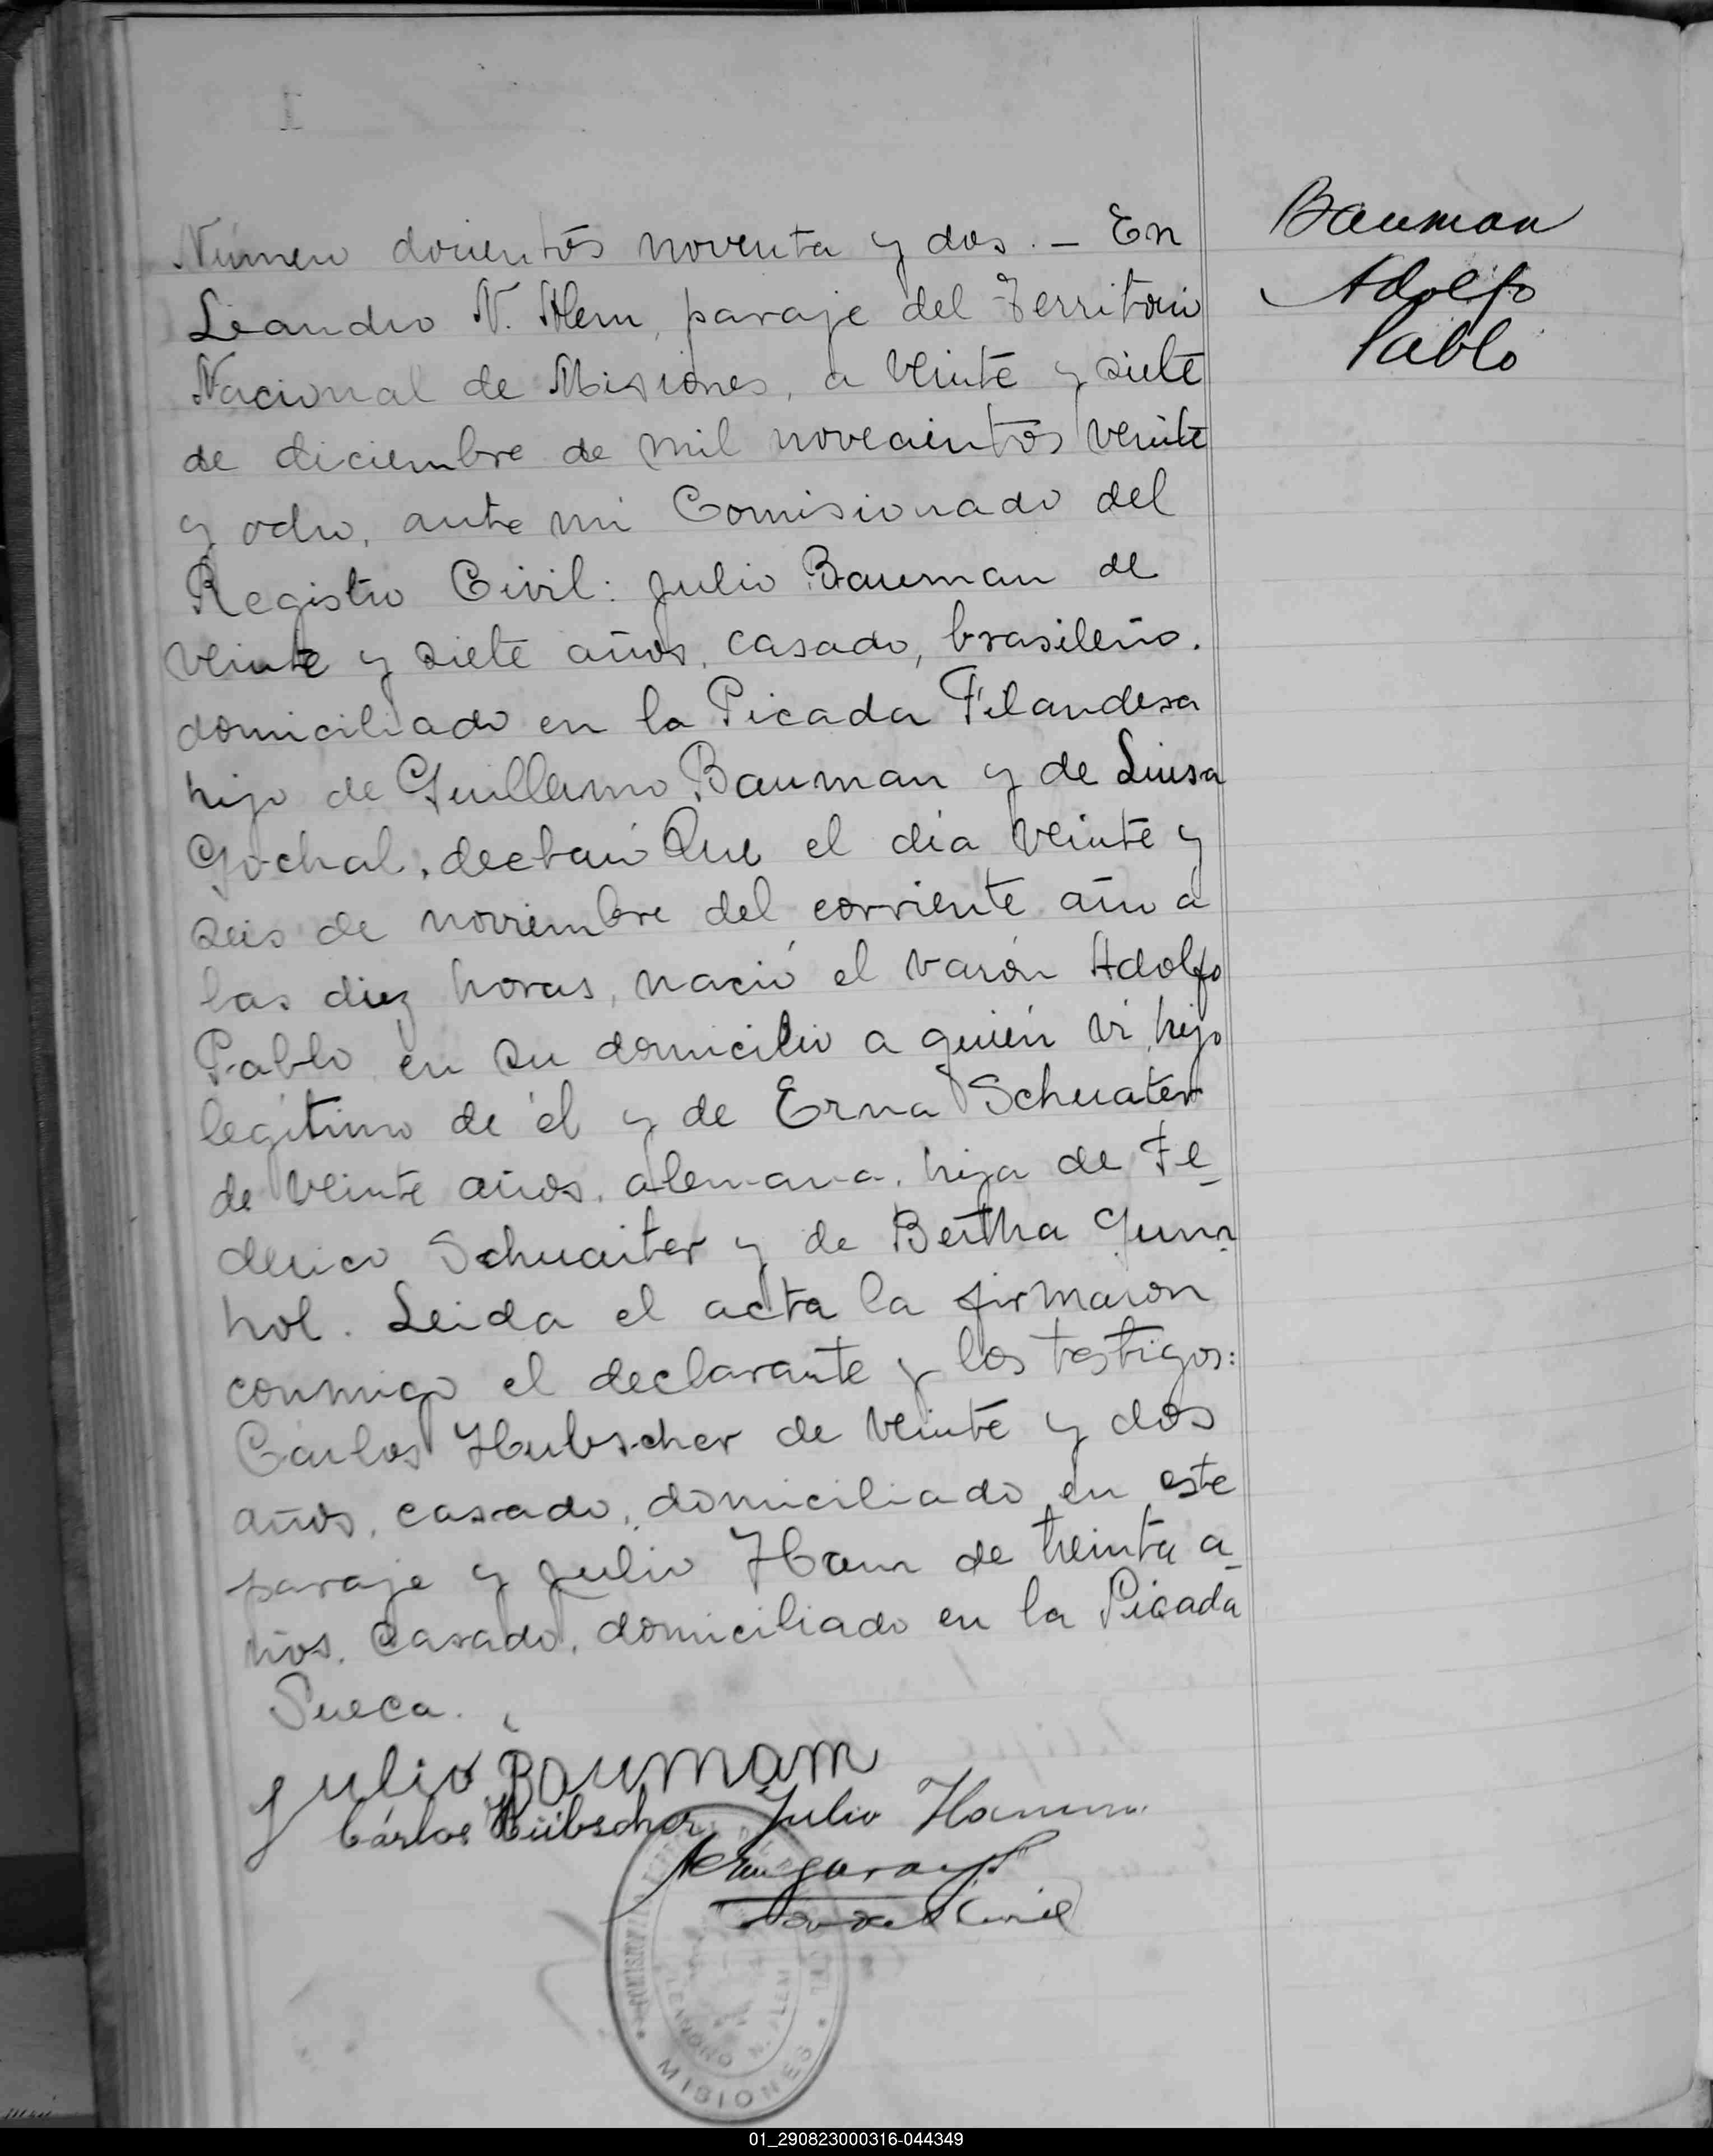 Número docientos noventa y dos. – En
Leandro N. Alem, paraje del Territorio
Nacional de Misiones, a veinte y siete
de diciembre de mil novecientos veinte
y ocho, ante mi Comisionado del
Registro Civil: Julio Bauman de
veinte y siete años, casado, brasileño.
domiciliado en la Picada Filandesa
hijo de Guillermo Bauman y de Luisa
Gochal, declaró Que el dia veinte y
seis de noviembre del corriente año a
las diez horas, nació el varón Adolfo
Pablo en su domicilio a quién vi, hijo
legítimo de él y de Erna Schuater
de veinte años, alemana, hija de Fe_
derico Schuaiter y de Bertha Gunn
hol. Leida el acta la firmaron
conmigo el declarante y los testigos:
Carlos Hubscher de veinte y dos
años, casado, domiciliado en este
paraje y Julio Ham de treinta a_
ños, casado, domiciliado en la Picada
Sueca.
Bauman
Adolfo
Pablo
Julio Baumam
Cárlos Hübscher Julio Hamm
LEANDRO N. ALEM
MISIONES
01_290823000316-044349